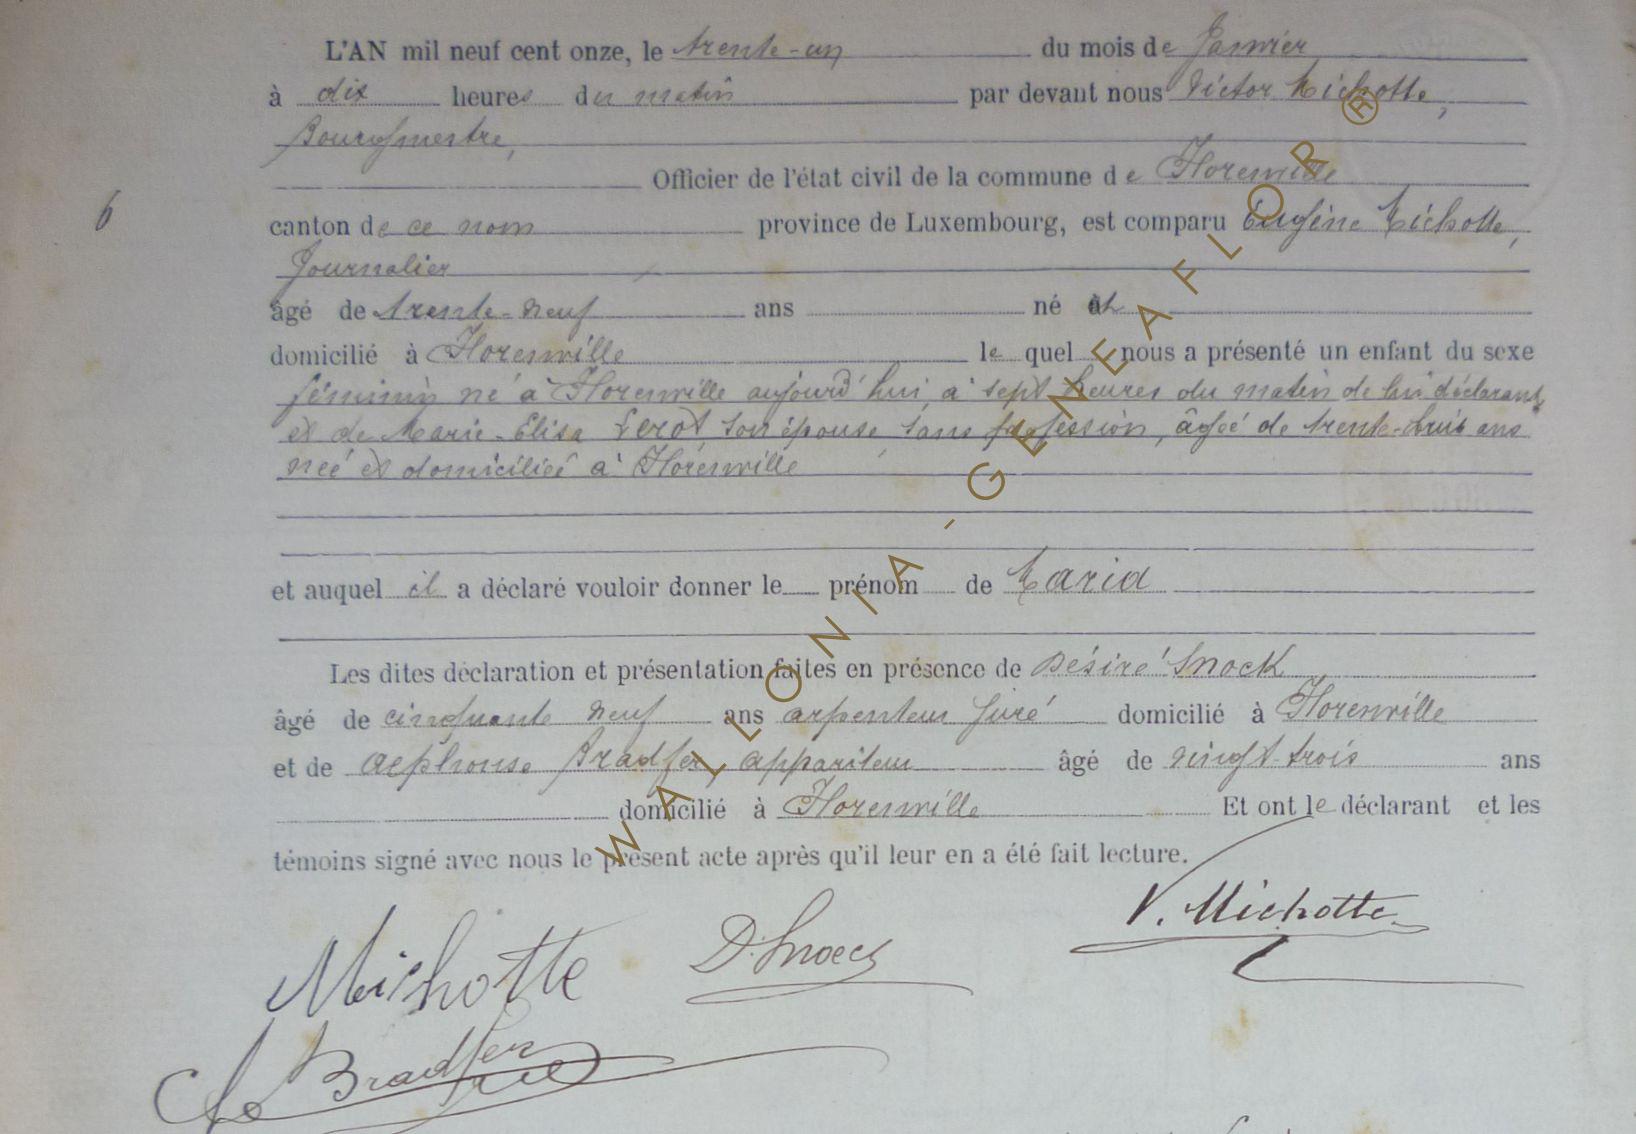 L'AN mil neuf cent onze, le trente-un du mois de Janvier
à dix heures du matin par devant nous Victor Michotte,
Bourgmestre,
Officier de l'état civil de la commune de Florenville
6
canton de ce nom province de Luxembourg, est comparu Eugène Michotte,
Journalier
âgé de trente-neuf ans né et
domicilié à Florenville le quel nous a présenté un enfant du sexe
féminin né à Florenville aujourd'hui, à sept heures du matin de lui déclarant
et de Marie-Elisa son épouse, sans profession, âgée de trente-huit ans
neé et domiciliée à Florenville
et auquel il a déclaré vouloir donner le prénom de Maria
Les dites déclaration et présentation faites en présence de Désiré Snock
âgé de cinquante neuf ans arpenteur juré domicilié à Florenville
et de Alphonse Bradfer, appariteur âgé de vingt-trois ans
domicilié à Florenville Et ont le déclarant et les
témoins signé avec nous le présent acte après qu'il leur en a été fait lecture.
V. Michotte
Michotte D. Snoeck
Bradfer
WALLONIA-GENEAFLOR ®